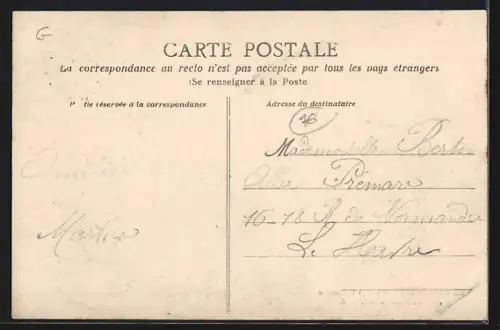 G
CARTE POSTALE
La correspondance au recto n'est pas acceptée par tous les pays étrangers
(Se renseigner à la Poste
P tie réservée à la correspondance
Adresse du destinataire
Mademoiselle Berthe
Prémare
16-18 R. de Normandie
Le Havre